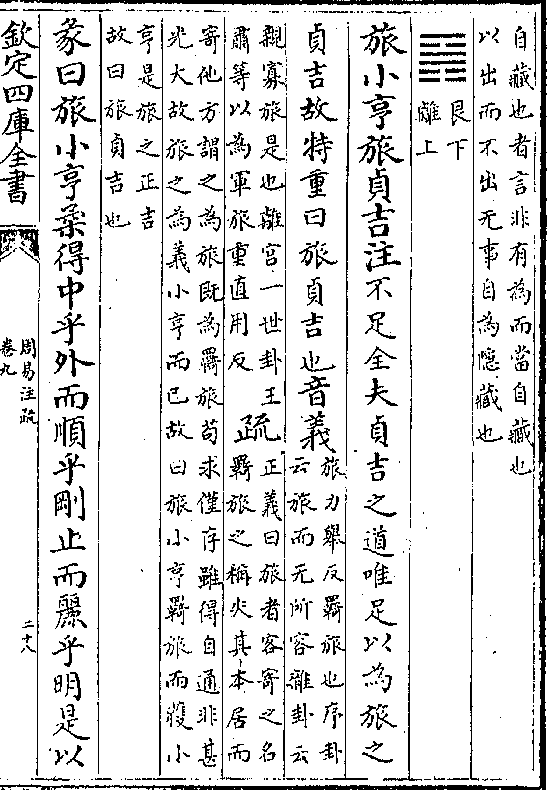 自藏也者言非有為而當自藏也
以出而不出无事自為隠藏也
艮下
離上
旅小亨旅貞吉注不足全夫貞吉之道唯足以為旅之
貞吉故特重曰旅貞吉也音義
旅力舉反羇旅也序卦
云旅而无所容雜卦云
親寡旅是也離宫一世卦王
肅等以為軍旅重直用反
疏
正義曰旅者客寄之名
羇旅之稱失其本居而
寄他方謂之為旅既為羇旅苟求僅存雖得自通非甚
光大故旅之為義小亨而已故曰旅小亨羇旅而獲小
亨是旅之正吉
故曰旅貞吉也
彖曰旅小亨柔得中乎外而順乎剛止而麗乎明是以
欽定四庫全書
周易注疏
卷九
二十八